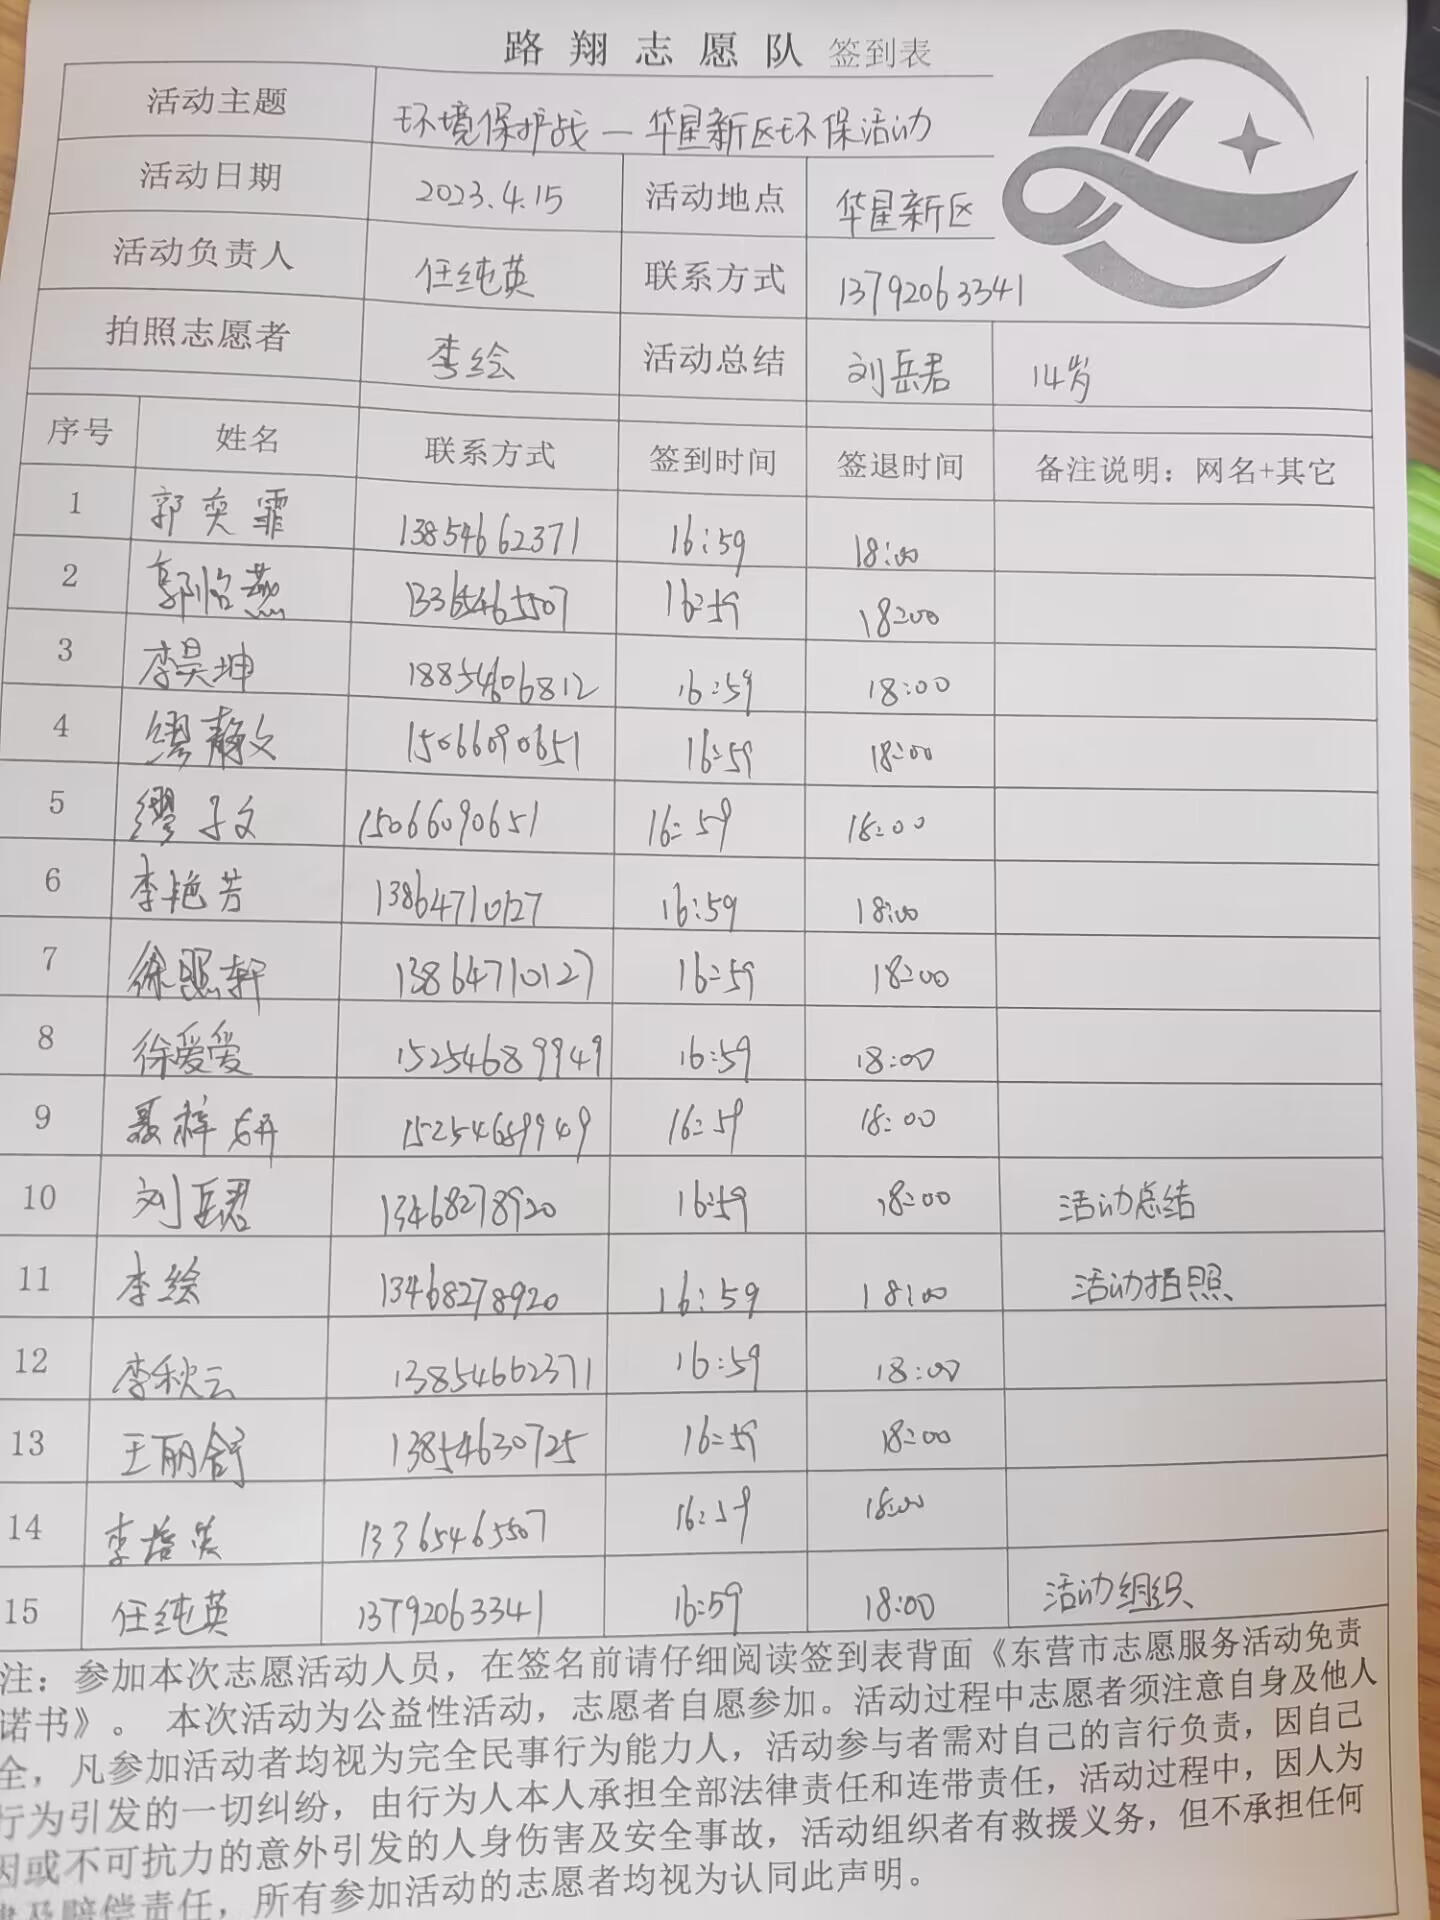 路翔志愿队 签到表
活动主题 环境保护战—华星新区环保活动
活动日期 2023.4.15 活动地点 华星新区
活动负责人 任纯英 联系方式 13792063341
拍照志愿者 李绘 活动总结 刘岳君 14岁
序号 姓名 联系方式 签到时间 签退时间 备注说明：网名+其它
1 郭奕霏 13854662371 16:59 18:00
2 郭怡燕 13365465507 16:59 18:00
3 李昊坤 18854606812 16:59 18:00
4 缪静文 15066090651 16:59 18:00
5 缪子文 15066090651 16:59 18:00
6 李艳芳 13864710127 16:59 18:00
7 徐熙轩 13864710127 16:59 18:00
8 徐爱爱 15254689949 16:59 18:00
9 聂梓妍 15254689949 16:59 18:00
10 刘岳君 13468278920 16:59 18:00 活动总结
11 李绘 13468278920 16:59 18:00 活动拍照
12 李秋云 13854662371 16:59 18:00
13 王丽舒 13854630725 16:59 18:00
14 李 13365465507 16:59 18:00
15 任纯英 13792063341 16:59 18:00 活动组织
注：参加本次志愿活动人员，在签名前请仔细阅读签到表背面《东营市志愿服务活动免责
诺书》。 本次活动为公益性活动，志愿者自愿参加。活动过程中志愿者须注意自身及他人
全，凡参加活动者均视为完全民事行为能力人，活动参与者需对自己的言行负责，因自己
行为引发的一切纠纷，由行为人本人承担全部法律责任和连带责任，活动过程中，因人为
因或不可抗力的意外引发的人身伤害及安全事故，活动组织者有救援义务，但不承担任何
律及赔偿责任，所有参加活动的志愿者均视为认同此声明。